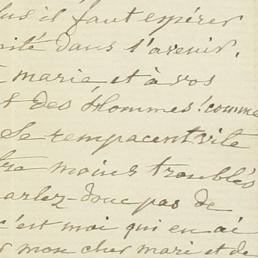 plus il faut espérer
dans l'avenir.
marie et à vos
des hommes! comme
se remplacent vite
moins troublés
parlez-donc pas de
c'est moi qui en ai
mon cher mari et de